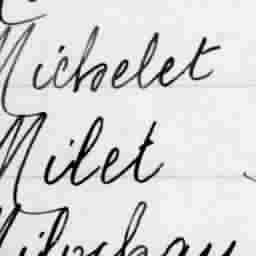 Michelet
Milet